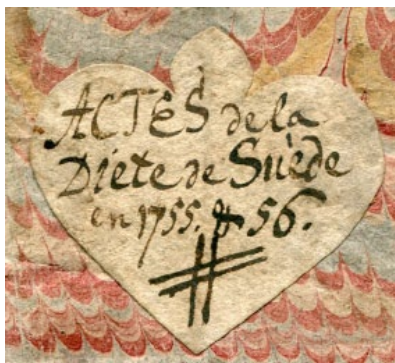 ACTES de la
Diete de Suède
en 1755. & 56.